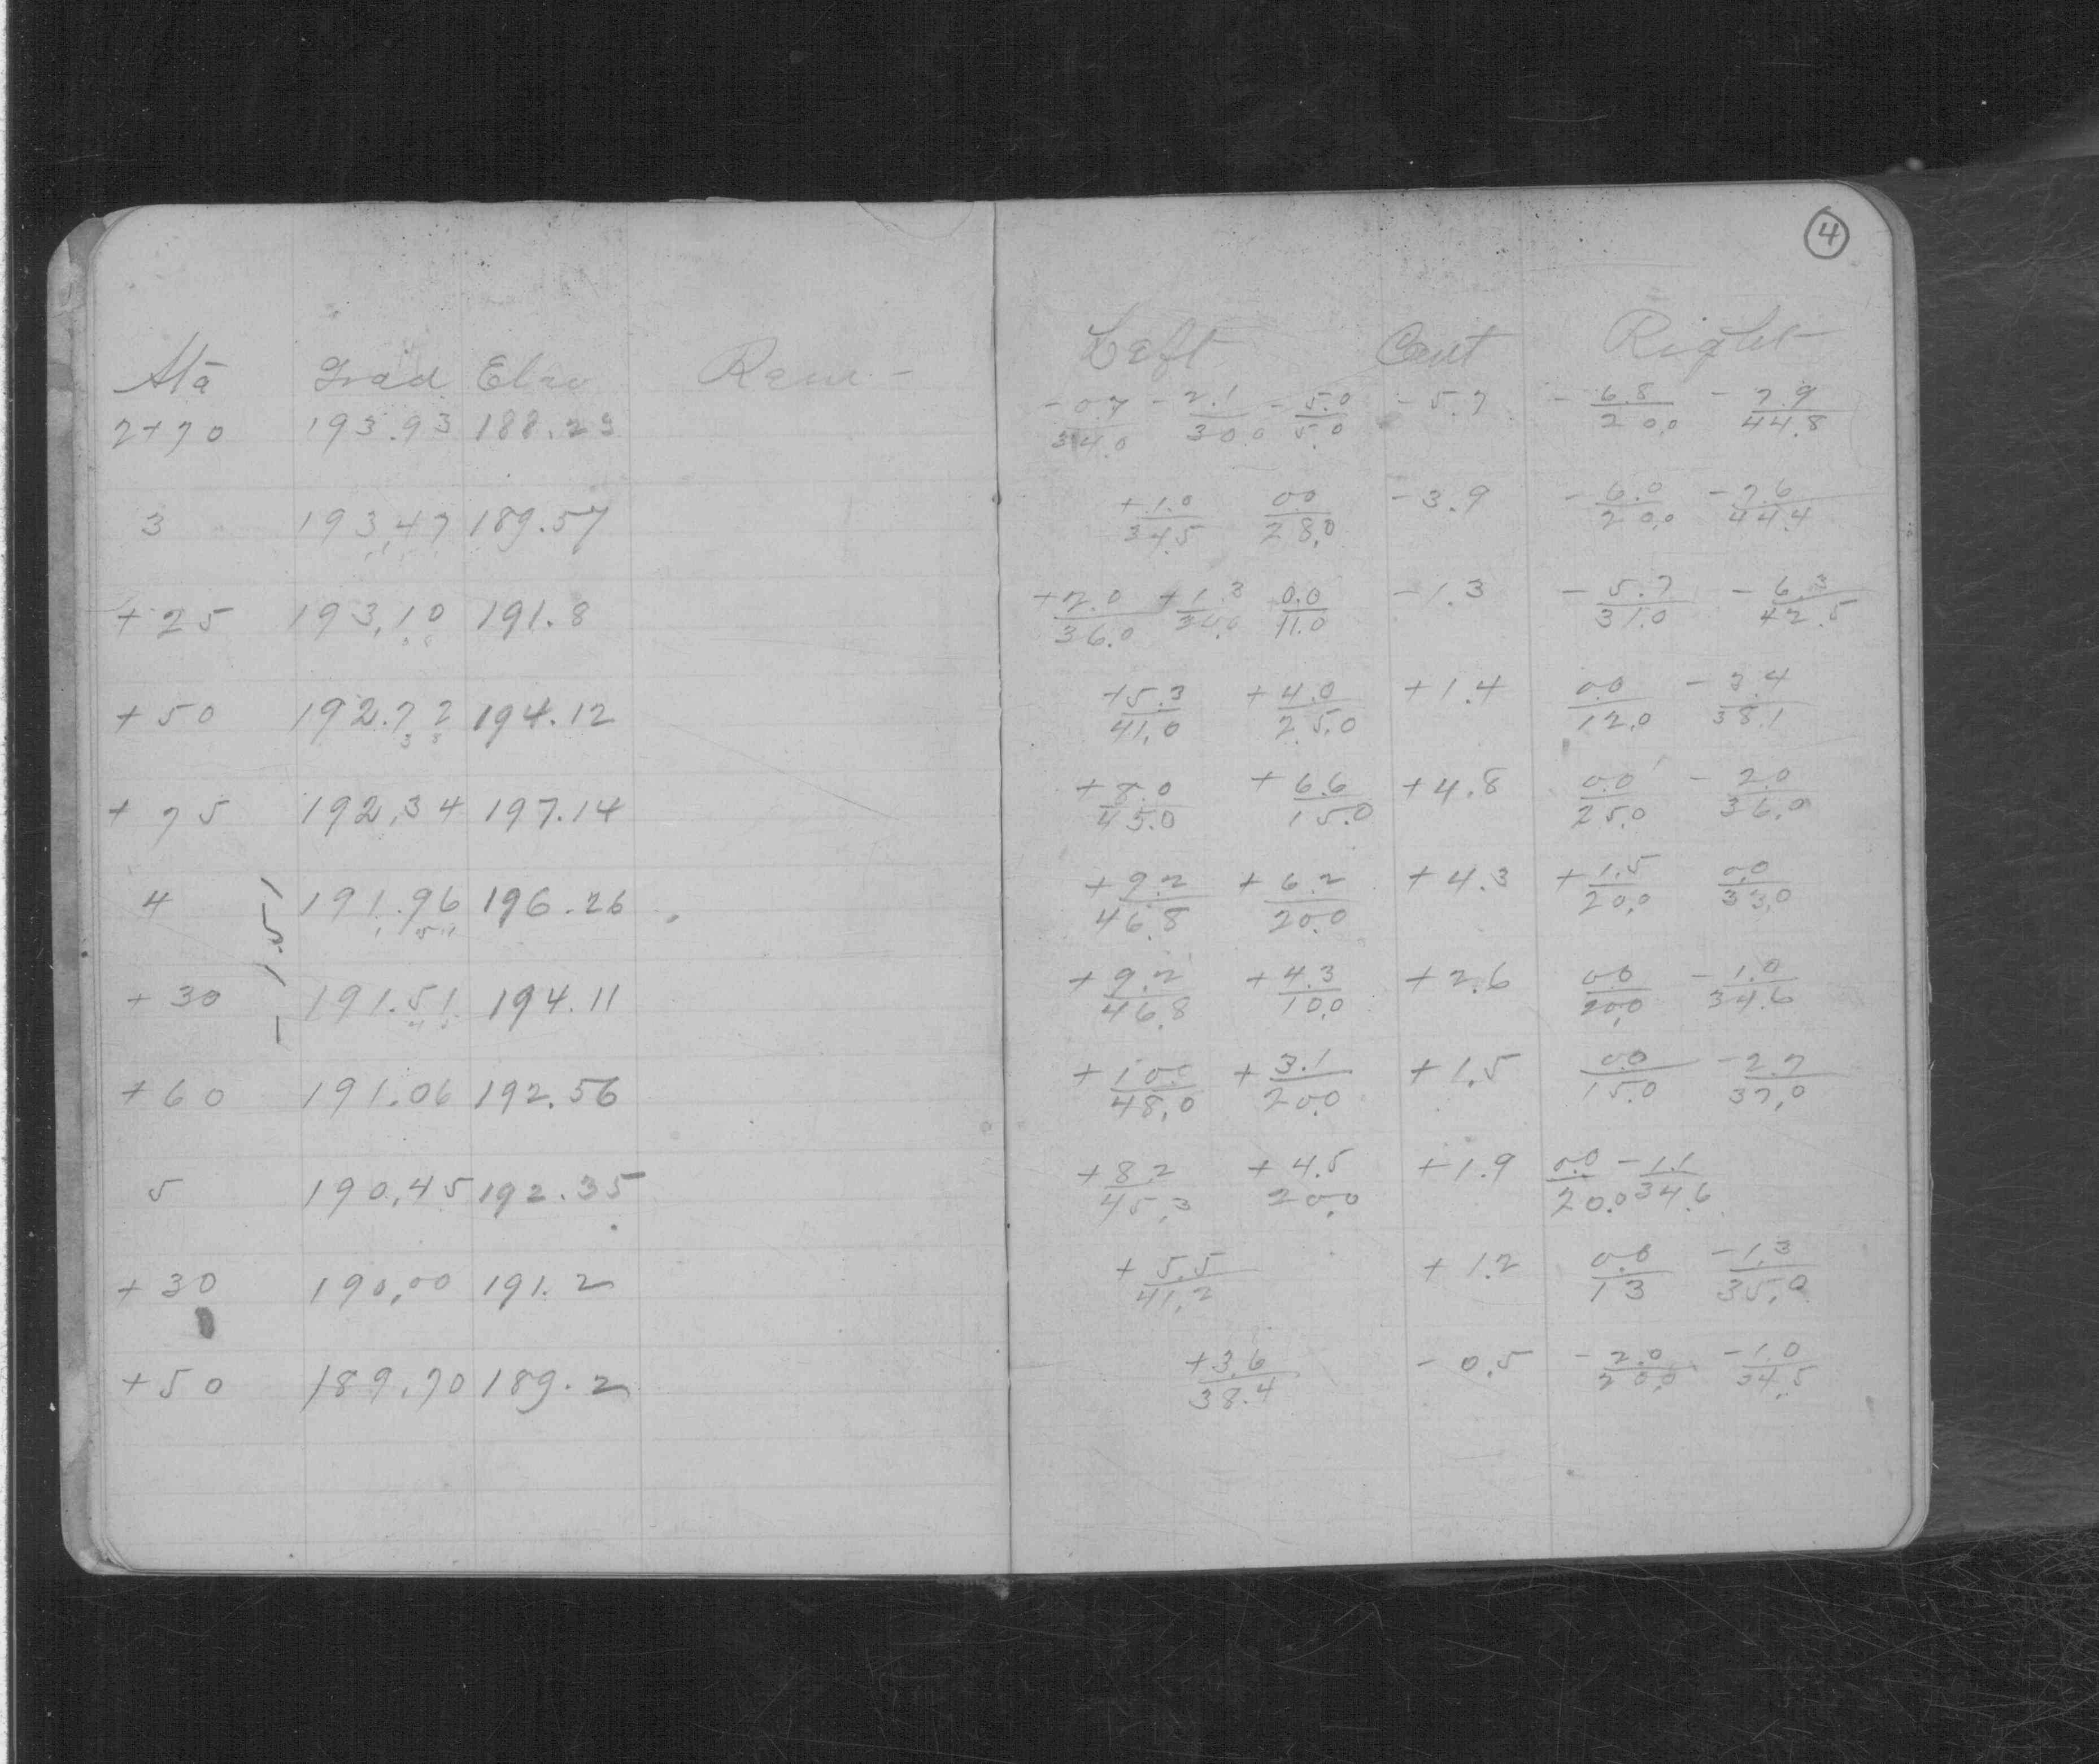 4
Sta Grad Elev Rem - Left Cent Right
2+70 193.93 188.23 -0.7/34.0 -2.1/30.0 -5.0/5.0 -5.7 -6.8/20.0 -7.9/44.8
3 193.47 189.57 +1.0/34.5 0.0/28.0 -3.9 -6.0/20.0 -7.6/44.4
+25 193.10 191.8 +2.0/36.0 +1.3/30.0 0.0/11.0 -1.3 -5.7/31.0 -6.3/42.5
+50 192.72 194.12 +5.3/41.0 +4.0/25.0 +1.4 0.0/12.0 -3.4/38.1
+75 192.34 197.14 +8.0/45.0 +6.6/15.0 +4.8 0.0/25.0 -2.0/36.0
4 191.96 196.26 +9.2/46.8 +6.2/20.0 +4.3 +1.5/20.0 0.0/33.0
- 1.51
+30 191.51 194.11 +9.2/46.8 +4.3/10.0 +2.6 0.0/20.0 -1.0/34.6
+60 191.06 192.56 +10.0/48.0 +3.1/20.0 +1.5 0.0/15.0 -2.7/37.0
5 190.45 192.35 +8.2/45.3 +4.5/20.0 +1.9 0.0/20.0 -1.1/34.6
+30 190.00 191.2 +5.5/41.2 +1.2 0.0/13 -1.3/35.0
+50 189.70 189.2 +3.6/38.4 -0.5 -2.0/20.0 -1.0/34.5